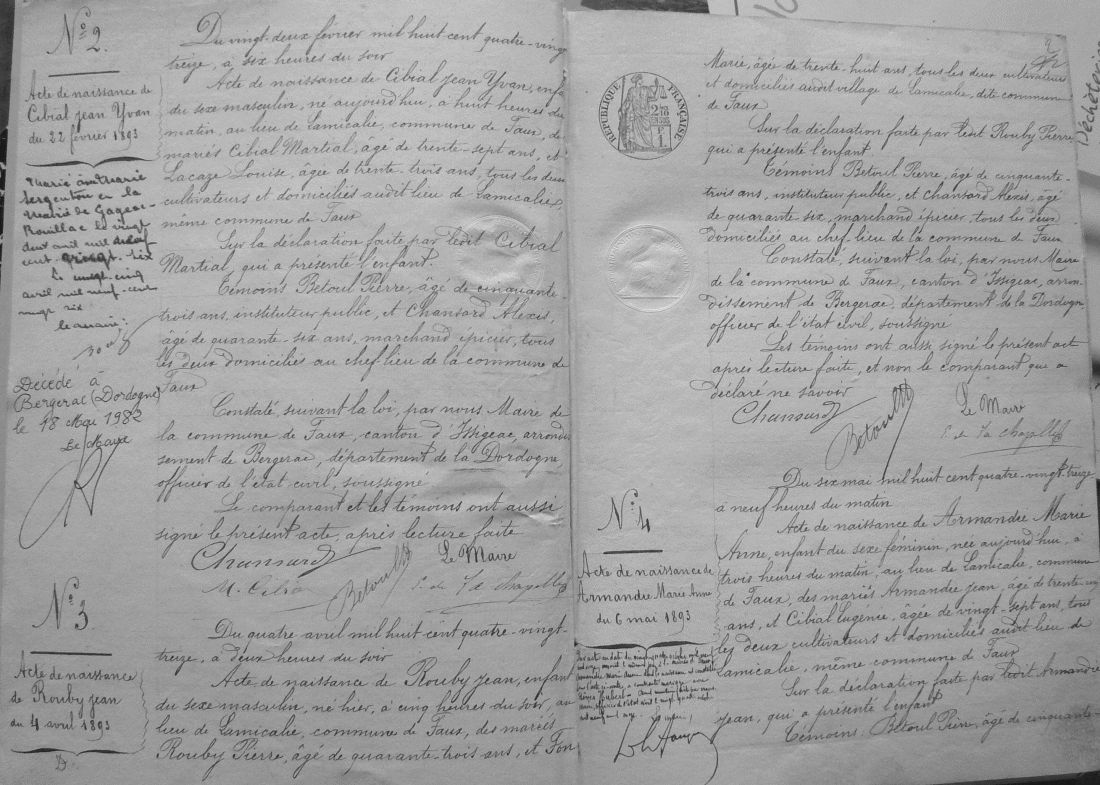 N° 2.
Acte de naissance de
Cibial Jean Yvan
du 22 février 1893
Marié à Marie
Sergenton en la
Mairie de Gageac-
Rouillac le vingt
deux avril mil neuf
cent vingt-six
Le vingt-cinq
avril mil neuf-cent
vingt six
le maire:
Décédé à
Bergerac (Dordogne)
le 18 Mai 1982
Le Maire
Du vingt-deux février mil huit cent quatre-vingt
treize, à six heures du soir
Acte de naissance de Cibial Jean Yvan, enfant
du sexe masculin, né aujourd'hui, à huit heures du
matin, au lieu de Lamicalie, commune de Faux, des
mariés Cibial Martial, âgé de trente-sept ans, et
Lacaze Louise, âgée de trente-trois ans, tous les deux
cultivateurs et domiciliés audit lieu de Lamicalie,
même commune de Faux
Sur la déclaration faite par ledit Cibial
Martial, qui a présenté l'enfant.
Témoins Betoul Pierre, âgé de cinquante-
trois ans, instituteur public, et Chansard Alexis,
âgé de quarante-six ans, marchand épicier, tous
les deux domiciliés au chef-lieu de la commune de
Faux
Constaté, suivant la loi, par nous Maire de
la commune de Faux, canton d'Issigeac, arrondis
sement de Bergerac, département de la Dordogne,
officier de l'état civil, soussigné
Le comparant et les témoins ont aussi
signé le présent acte, après lecture faite
Chansard
M. Cibial
Betoul
Le Maire
de La Chapelle
N° 3
Acte de naissance
de Rouby Jean
du 4 avril 1893
D.
Du quatre avril mil huit cent quatre-vingt-
treize, à deux heures du soir
Acte de naissance de Rouby Jean, enfant
du sexe masculin, né hier, à cinq heures du soir, au
lieu de Lamicalie, commune de Faux, des mariés
Rouby Pierre, âgé de quarante-trois ans, et Fon
Marie, âgée de trente-huit ans, tous les deux cultivateurs
et domiciliés audit village de Lamicalie, dite commune
de Faux
Sur la déclaration faite par ledit Rouby Pierre,
qui a présenté l'enfant
Témoins Betoul Pierre, âgé de cinquante-
trois ans, instituteur public, et Chansard Alexis, âgé
de quarante-six, marchand épicier, tous les deux
domiciliés au chef-lieu de la commune de Faux
Constaté, suivant la loi, par nous Maire
de la commune de Faux, canton d'Issigeac, arron-
dissement de Bergerac, département de la Dordogne,
officier de l'état civil, soussigné
Les témoins ont aussi signé le présent acte
après lecture faite, et non le comparant qui a
déclaré ne savoir
Chansard
Betoul
Le Maire
de La Chapelle
RÉPUBLIQUE FRANÇAISE
N° 4
Acte de naissance de
Armandie Marie Anne
du 6 mai 1893
Du six mai mil huit cent quatre-vingt treize
à neuf heures du matin
Acte de naissance de Armandie Marie
Anne, enfant du sexe féminin, née aujourd'hui, à
trois heures du matin, au lieu de Lamicalie, commune
de Faux, des mariés Armandie Jean, âgé de trente-un
ans, et Cibial Eugénie, âgée de vingt-sept ans, tous
les deux cultivateurs et domiciliés audit lieu de
Lamicalie, même commune de Faux
Sur la déclaration faite par ledit Armandie
Jean, qui a présenté l'enfant
Témoins: Betoul Pierre, âgé de cinquante-